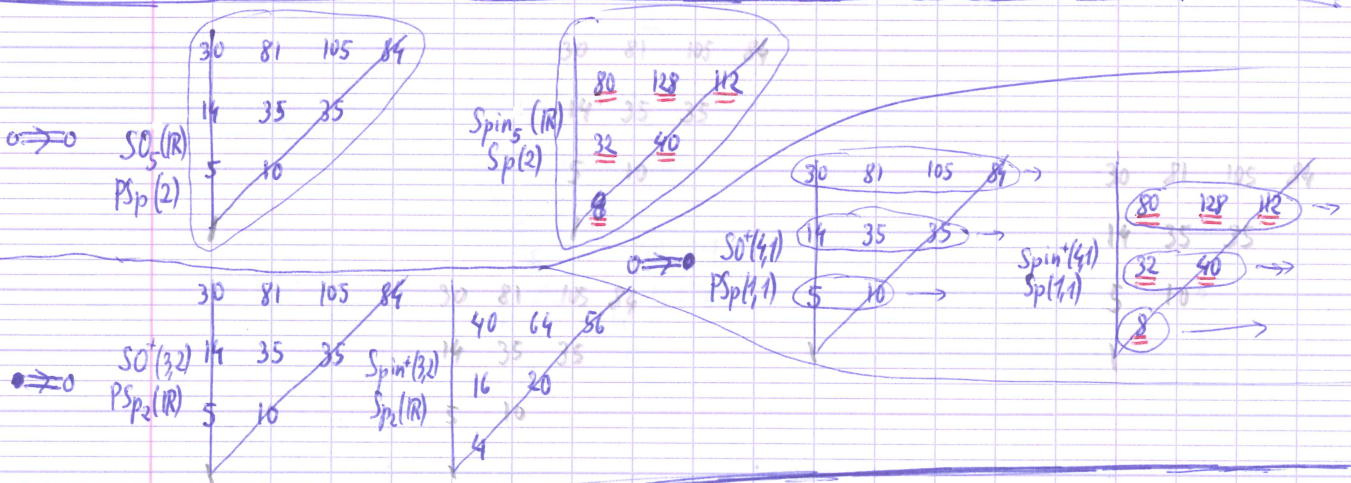 30 81 105 84
14 35 35
SO₅(IR)
5 10
PSp(2)
80 128 112
Spin₅(IR)
32 40
Sp(2)
8
30 81 105 84 →
14 35 35 →
SO⁺(4,1)
PSp(1,1)
5 10 →
80 128 112 →
Spin⁺(4,1)
32 40 →
Sp(1,1)
8 →
30 81 105 84
SO⁺(3,2) 14 35 35
PSp₂(IR)
5 10
40 64 56
Spin⁺(3,2)
16 20
Sp₂(IR)
4